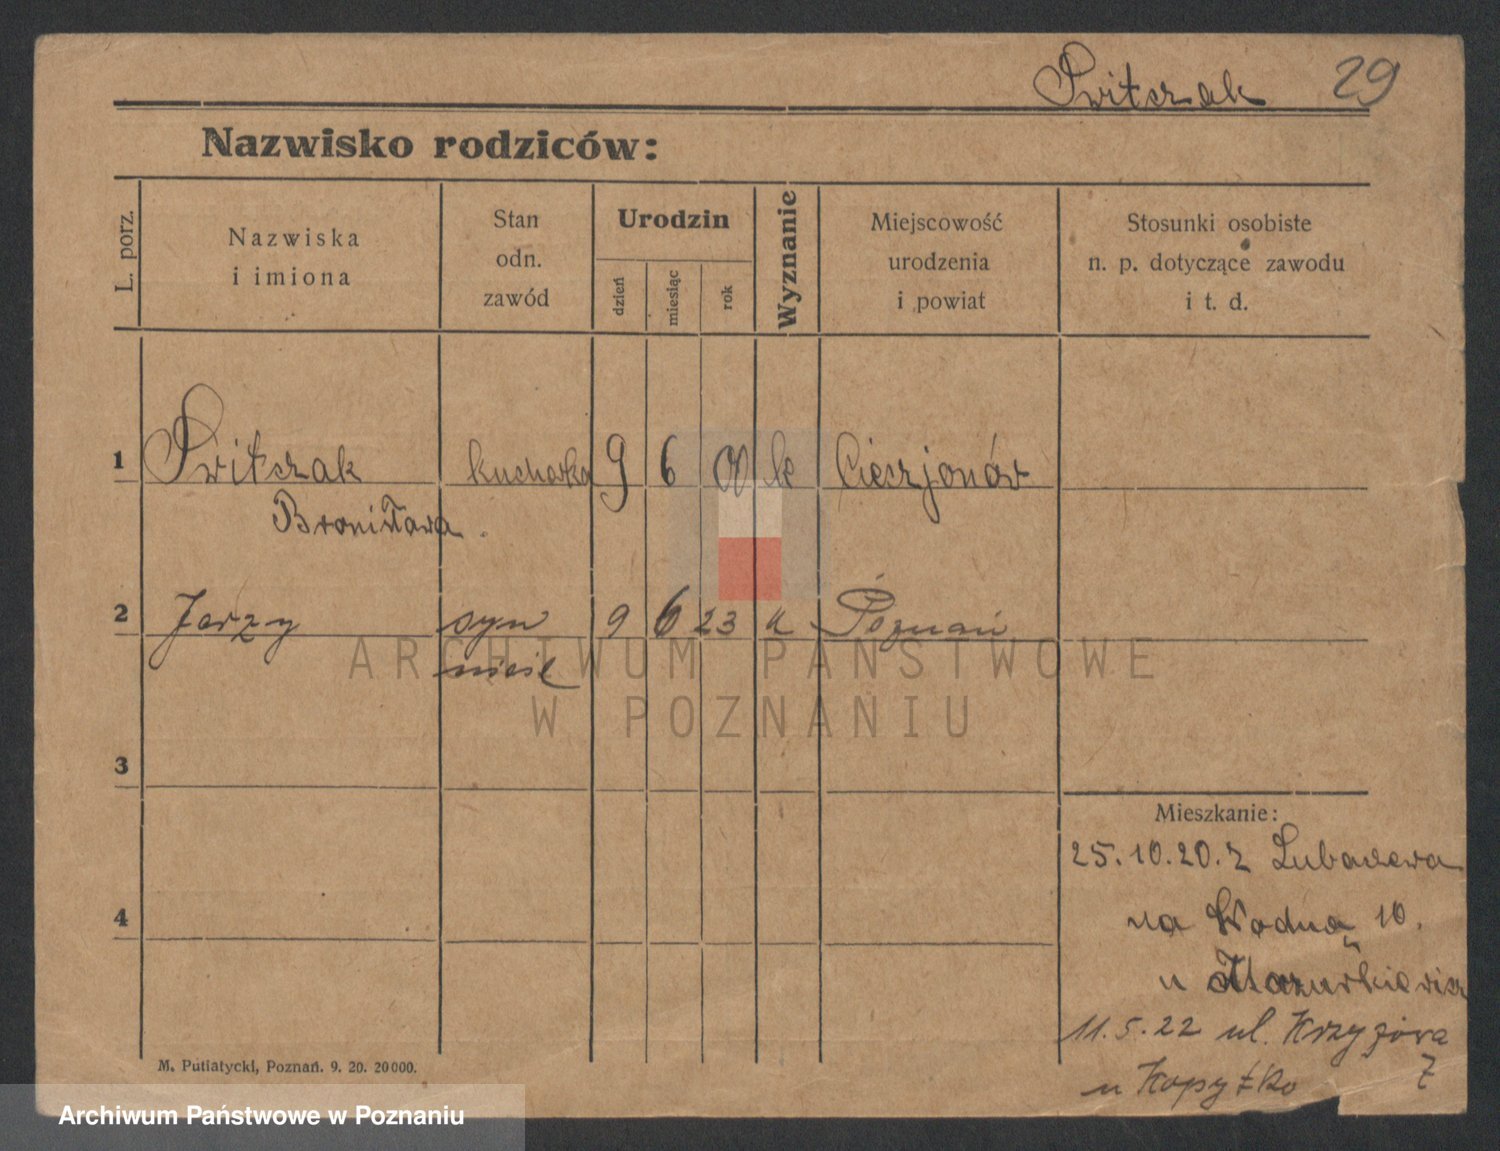 Świtczak 29
Nazwisko rodziców:
L. porz.
Nazwiska
i imiona
Stan
odn.
zawód
Urodzin
dzień
miesiąc
rok
Wyznanie
Miejscowość
urodzenia
i powiat
Stosunki osobiste
n. p. dotyczące zawodu
i t. d.
1 kucharka 9 6 00 k
Bronisława.
2 Jerzy syn 9 6 23 k Poznań
nieśl
ARCHIWUM PAŃSTWOWE
W POZNANIU
3
Mieszkanie:
25.10.20. z
4
na Wodną 10.
u Mazurkiewicz
11.5.22 ul. Krzyżowa
7
u Kopyłko
M. Putiatycki, Poznań. 9. 20. 20000.
Archiwum Państwowe w Poznaniu